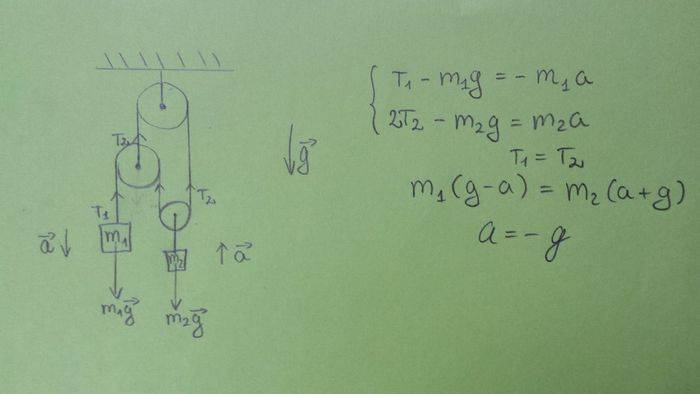 T₂
T₂
T₁
m₁
m₂
a⃗
a⃗
m₁g⃗
m₂g⃗
g⃗
T₁ - m₁g = - m₁a
2T₂ - m₂g = m₂a
T₁ = T₂
m₁(g-a) = m₂(a+g)
a = - g